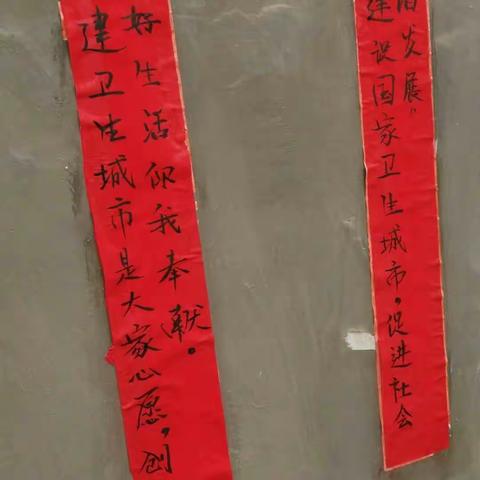 建卫生城市是大家心愿，创
好生活你我奉献。
建设国家卫生城市，促进社会
发展。